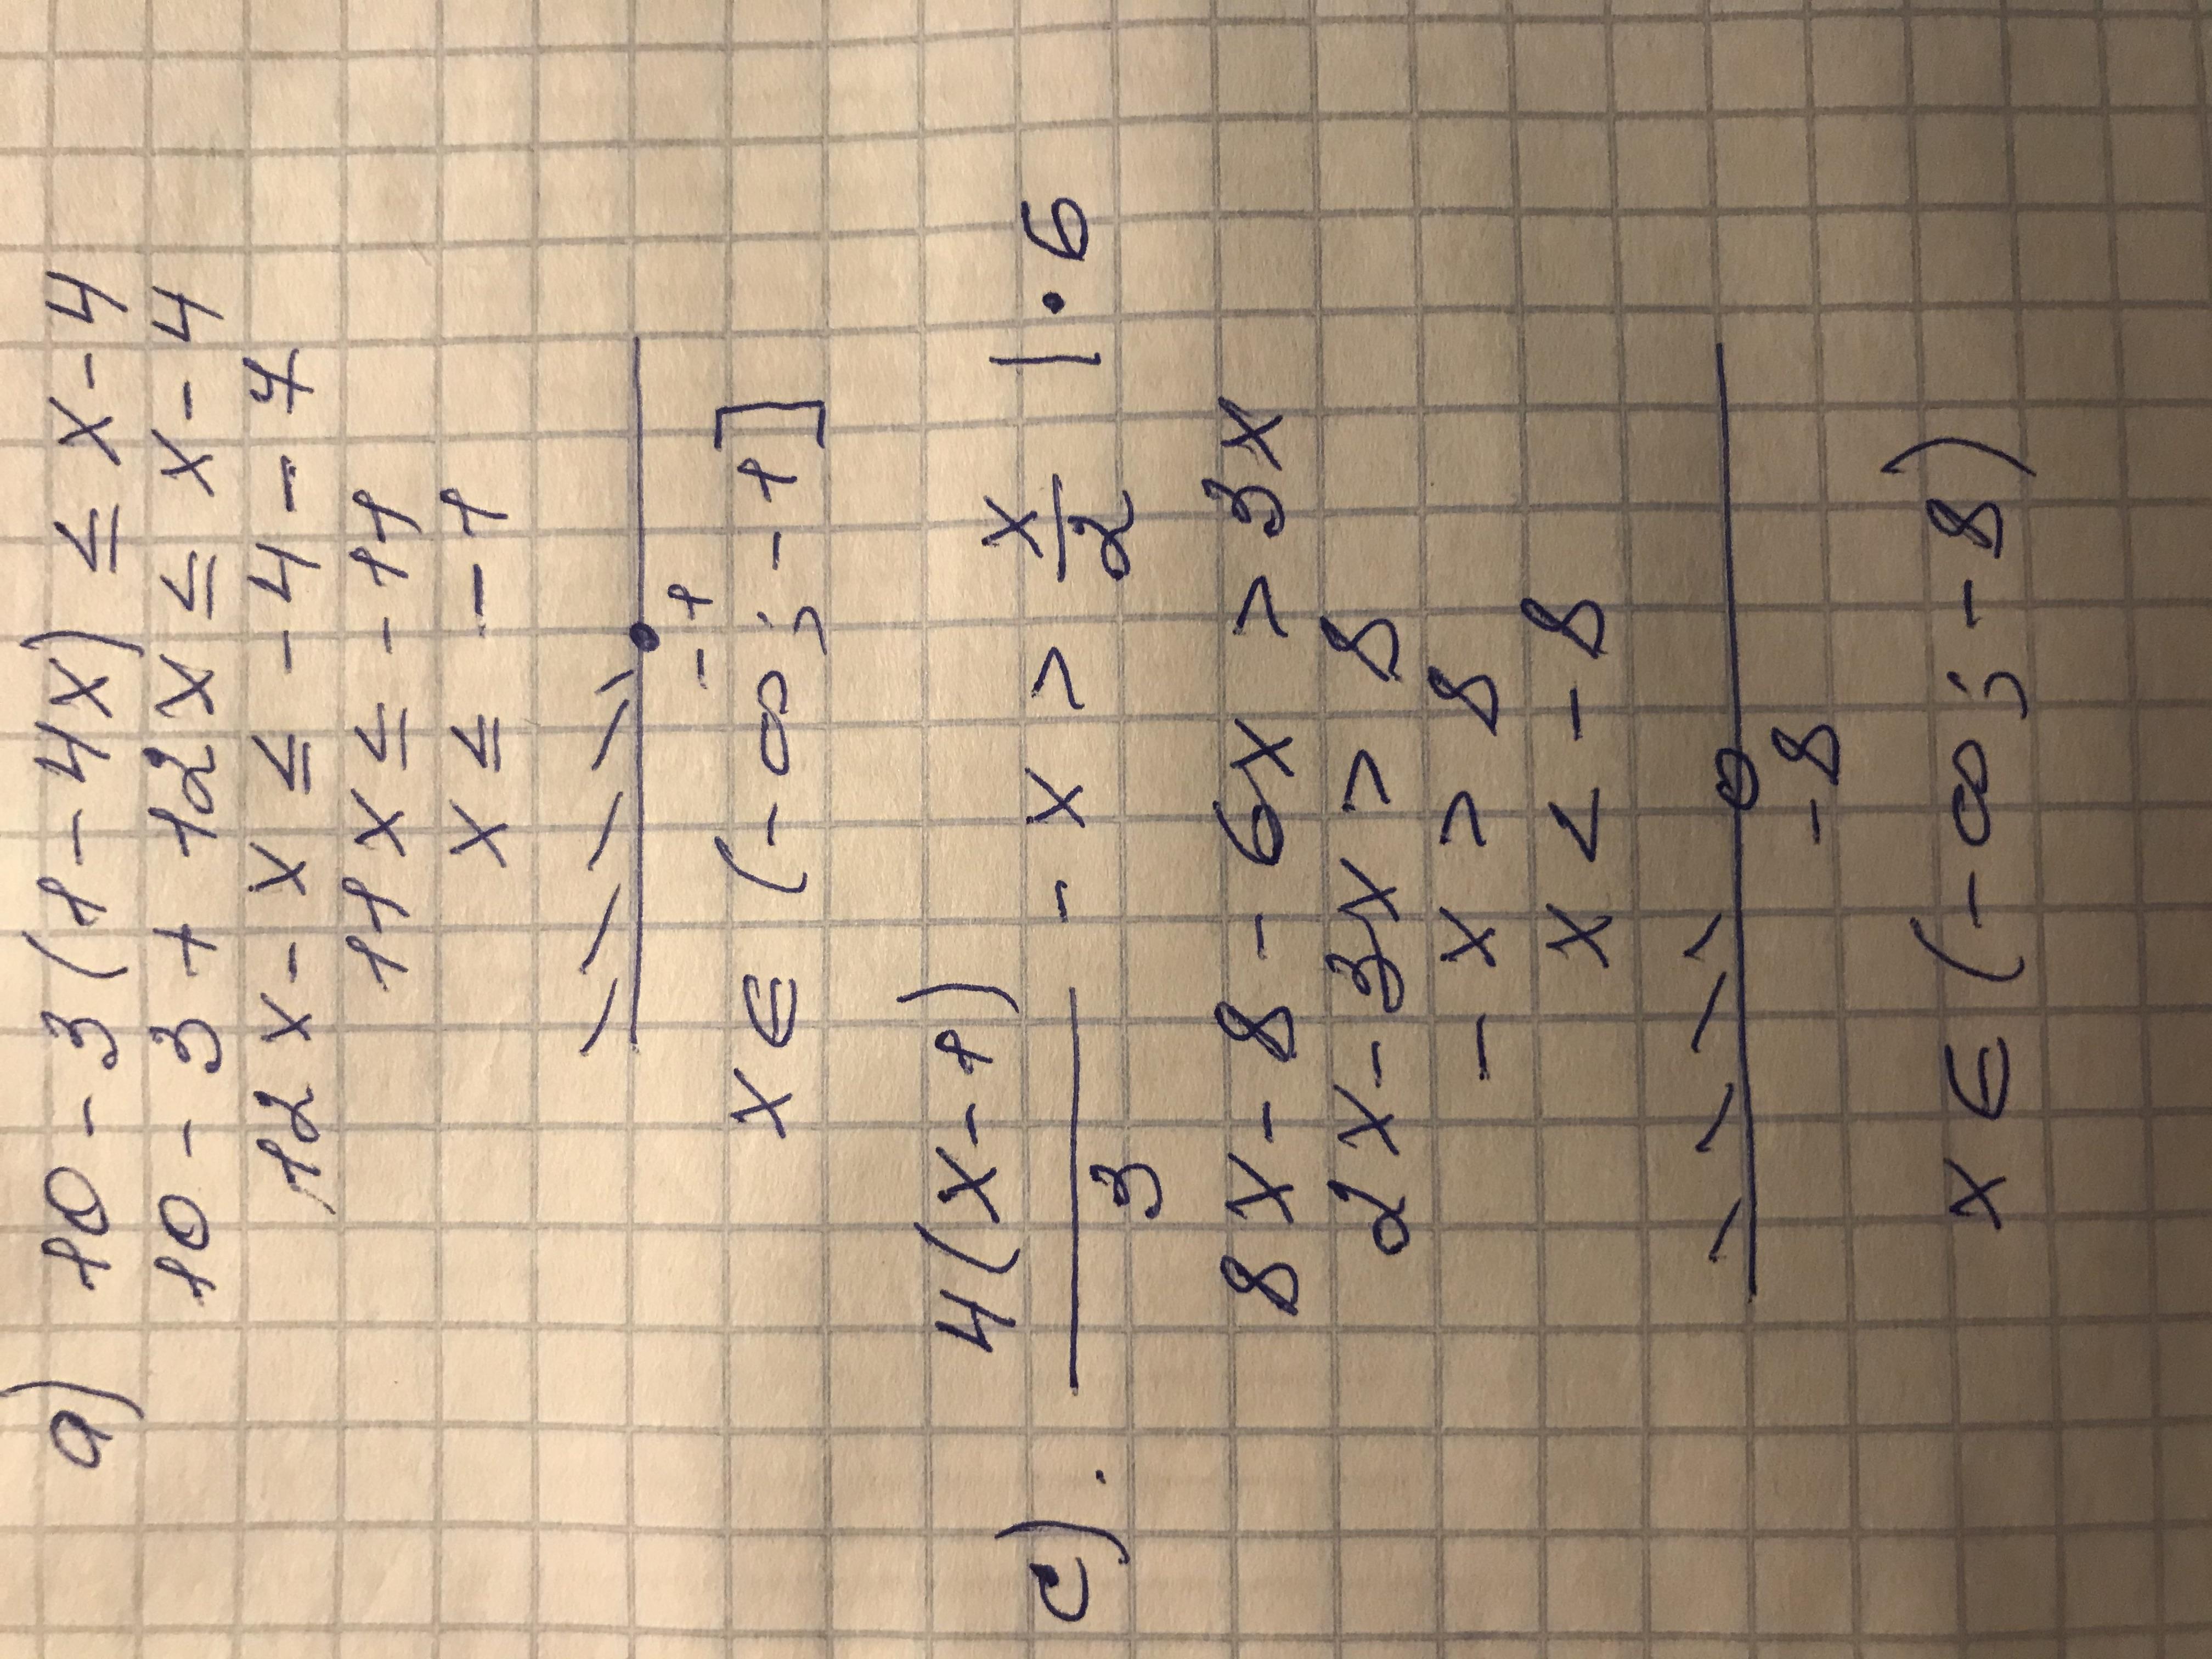 a) 10 - 3(1 - 4x) ≤ x - 4
10 - 3 + 12x ≤ x - 4
12x - x ≤ -4 - 7
11x ≤ -11
x ≤ -1
-1
x ∈ (-∞; -1]
c). 4(x-1)/3 - x > x/2 |·6
8x - 8 - 6x > 3x
2x - 3x > 8
-x > 8
x < -8
-8
x ∈ (-∞; -8)